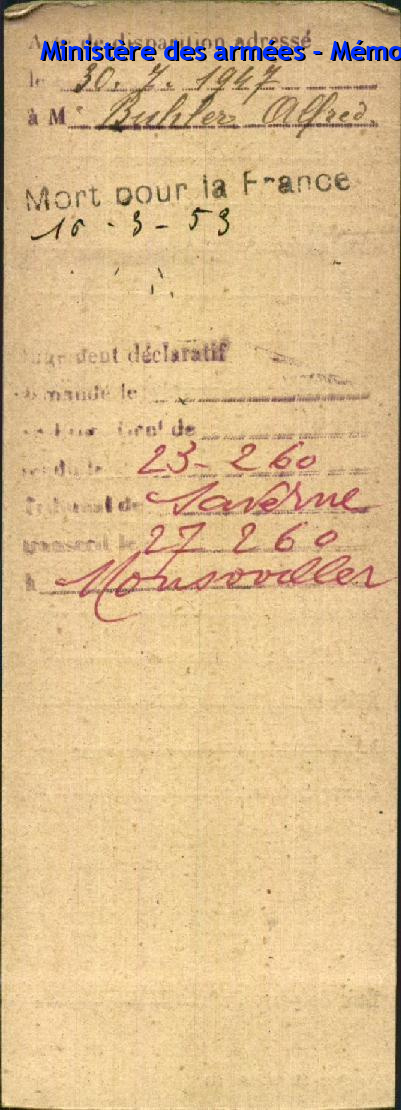 Acte de disparition adressé
Ministère des armées - Mémo
le 30. 7. 1947
à Mr Buhler Alfred.
Mort pour la France
10-3-53
Jugement déclaratif
demandé le
Gen^l de
rendu le 23-2 60
Tribunal de Saverne
transcrit le 27 2 60
à Monswiller